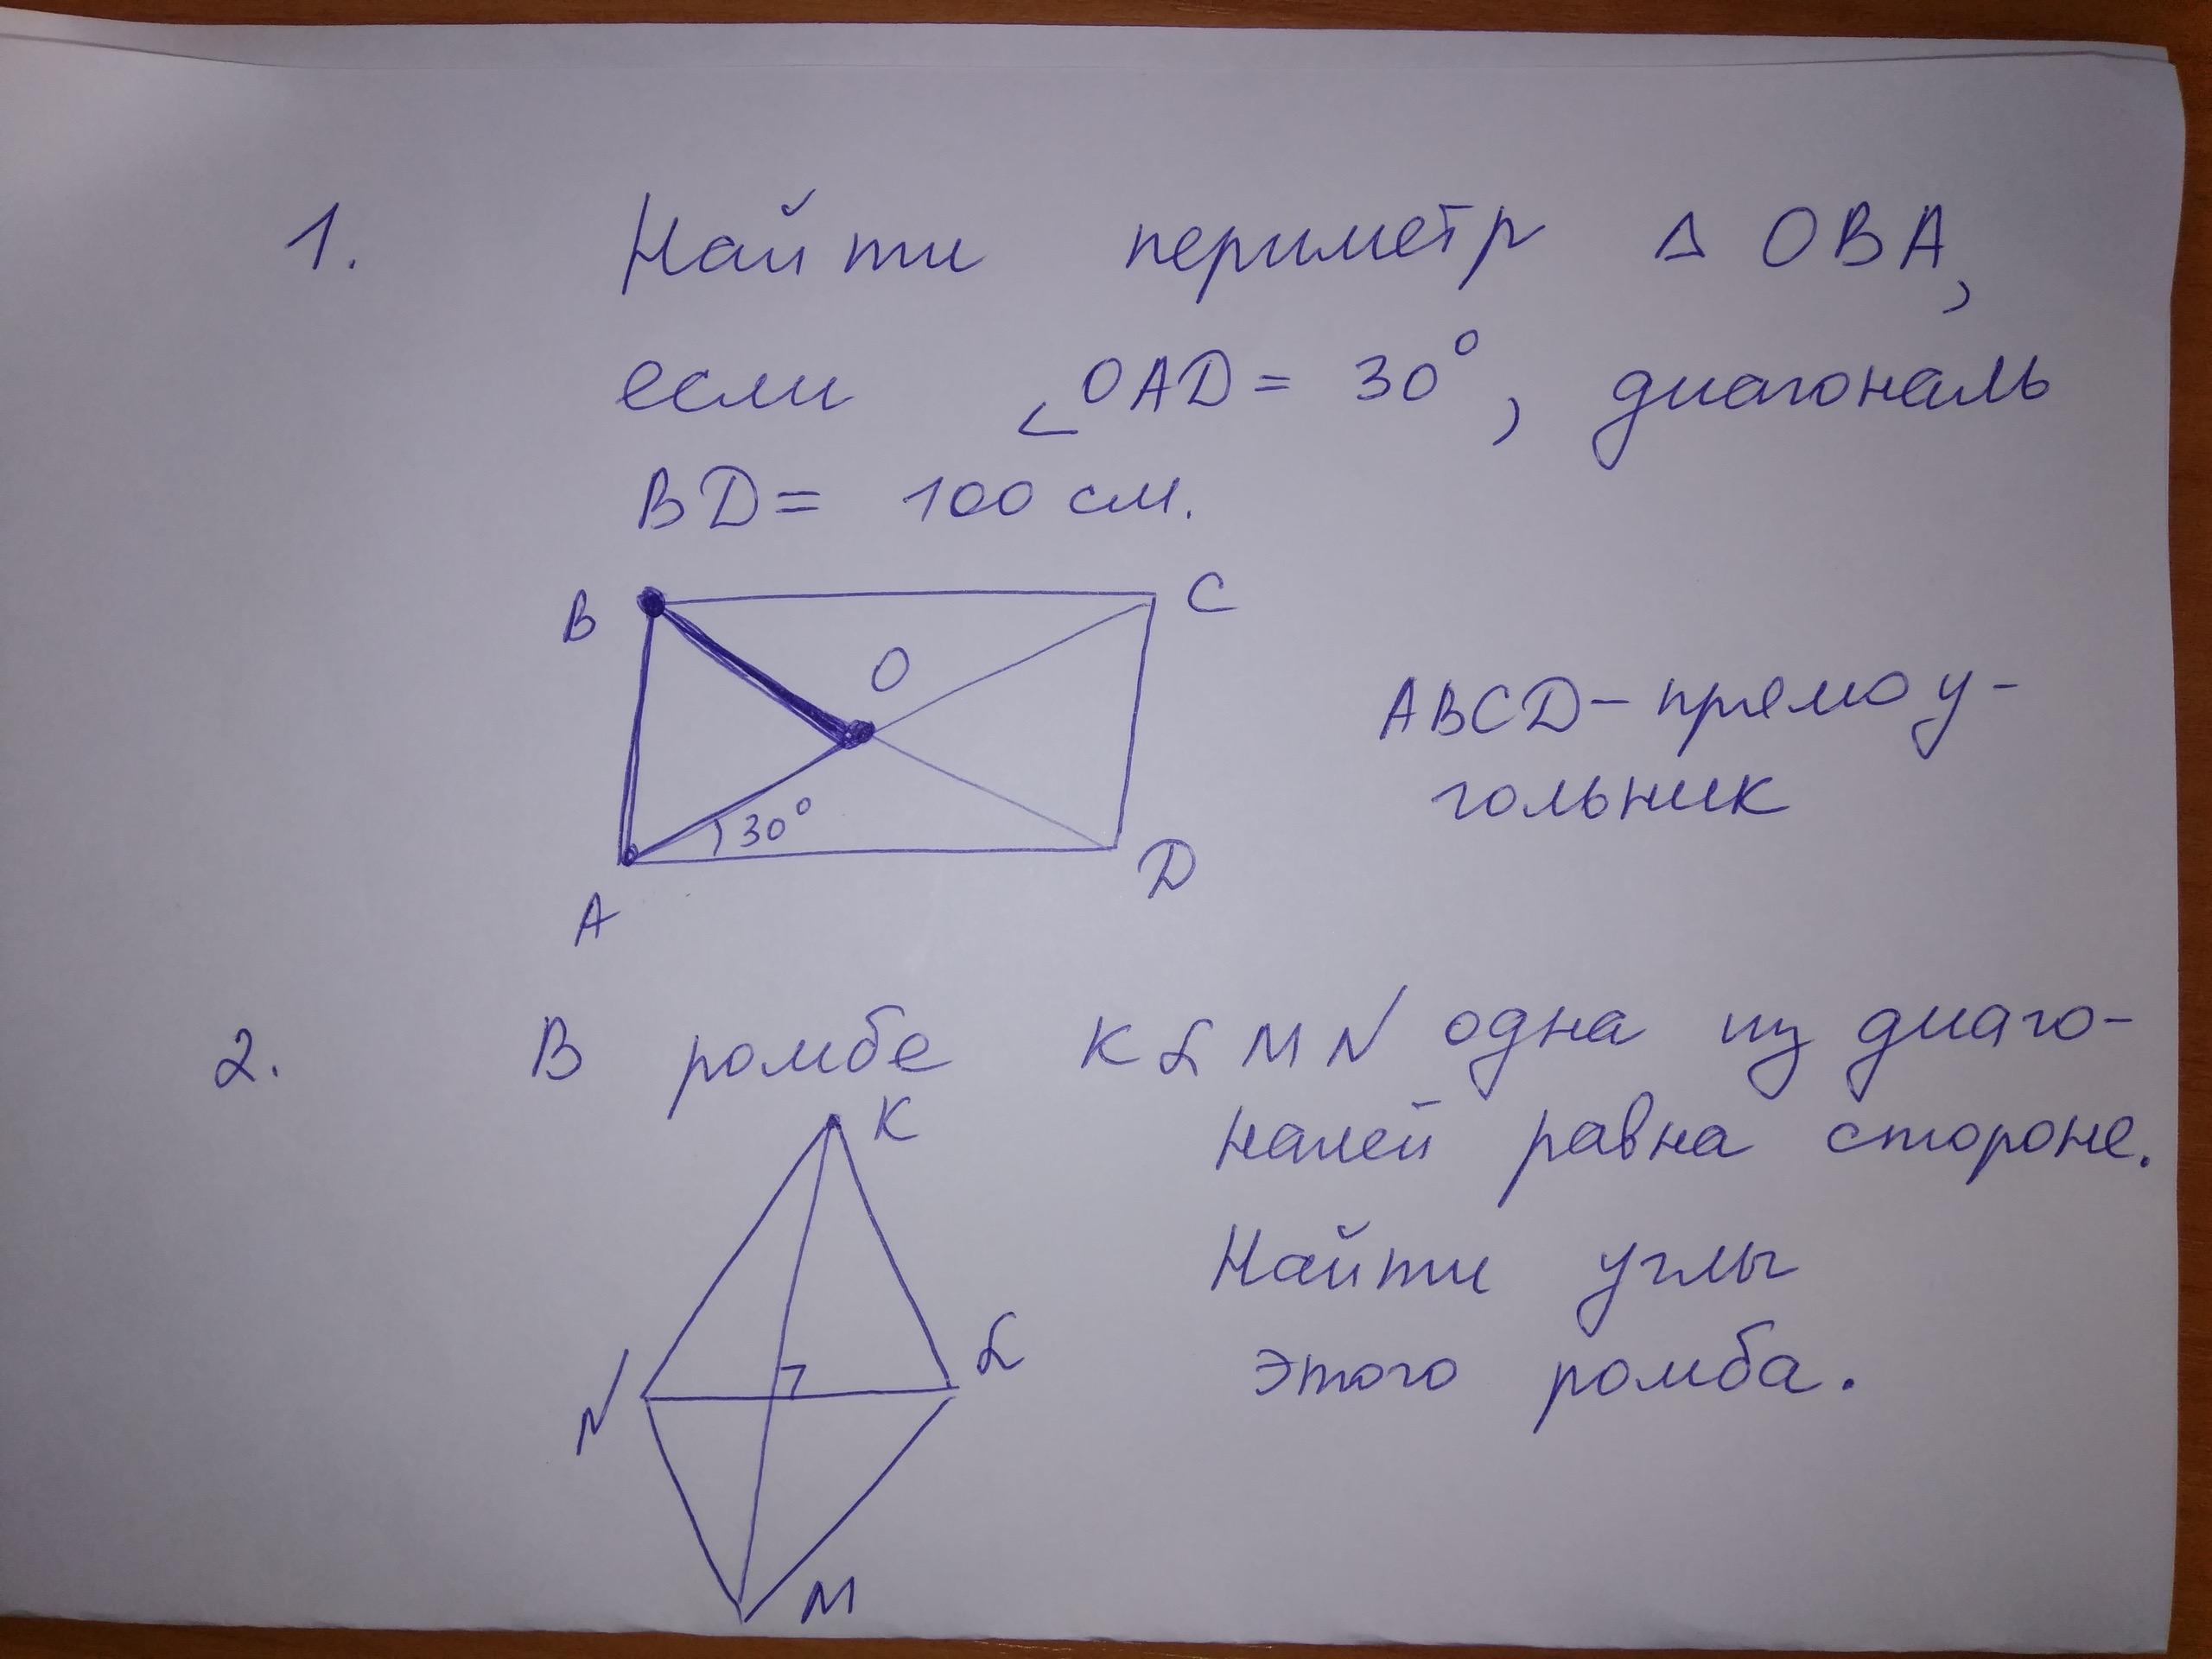 1. Найти периметр △ OBA,
если ∠OAD = 30°, диагональ
BD = 100 см.
B
C
O
30°
A
D
ABCD – прямоу-
гольник
2. В ромбе KLMN одна из диаго-
налей равна стороне.
K
Найти углы
этого ромба.
N
L
M